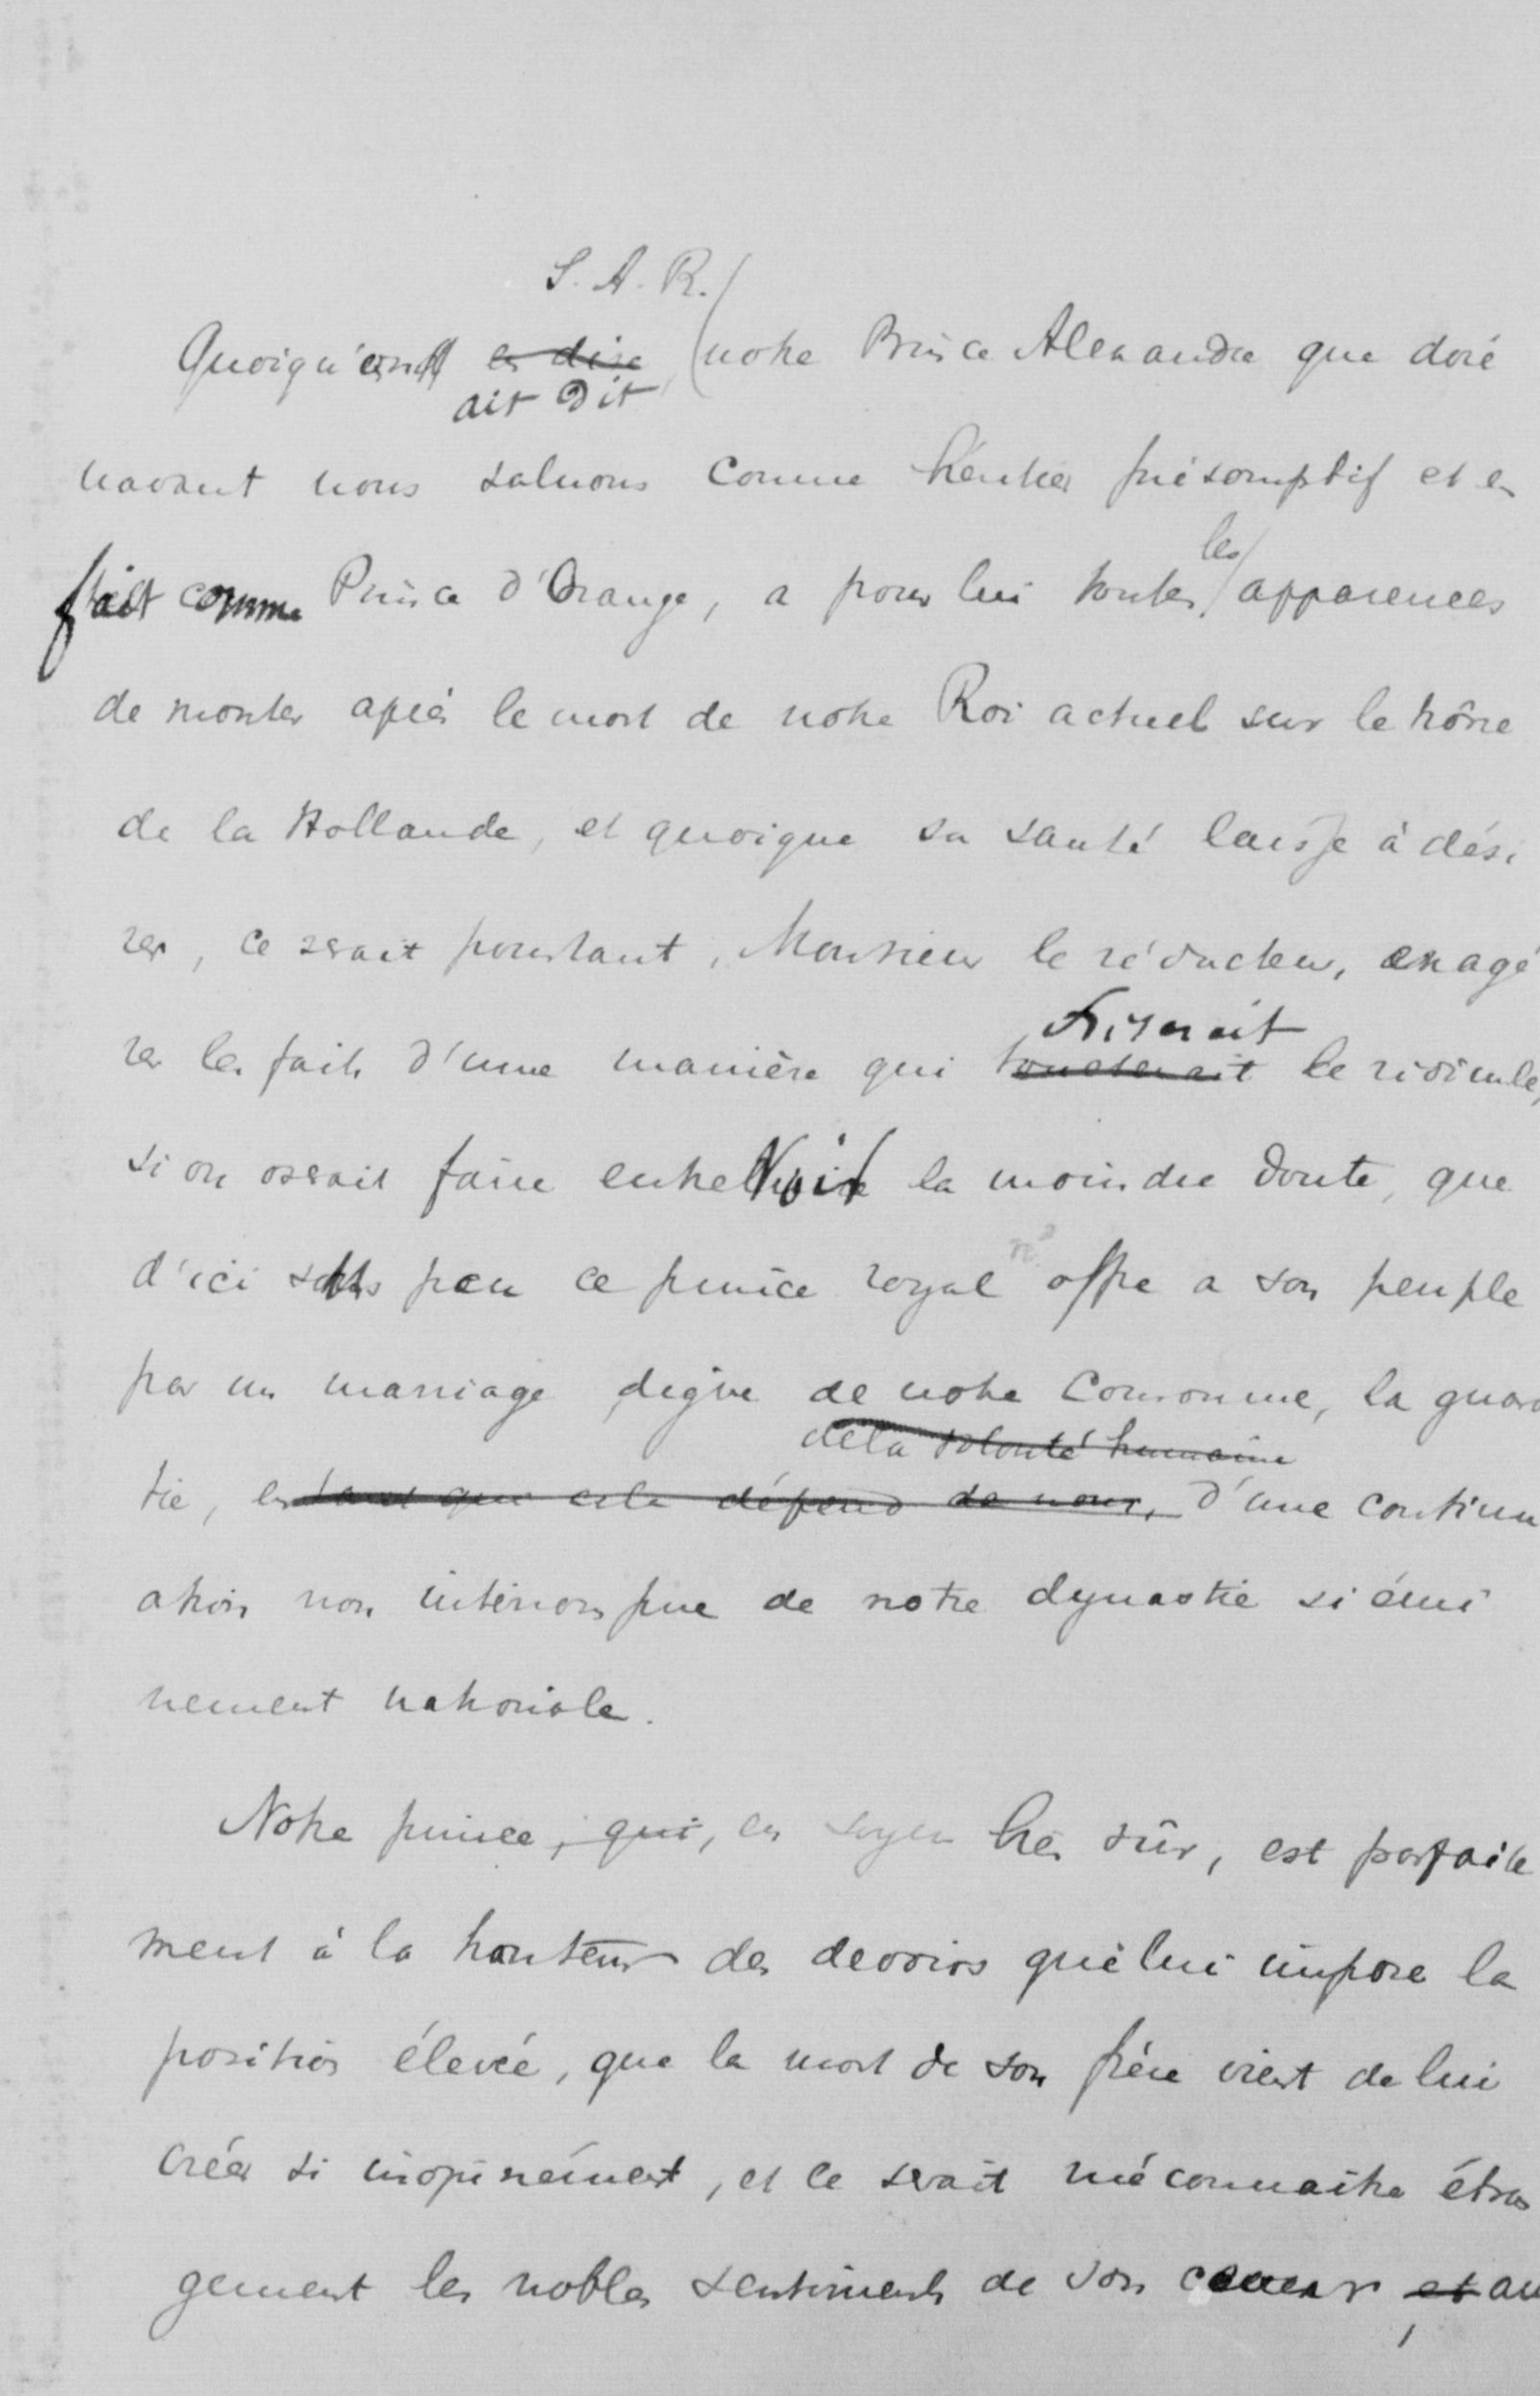 S. A. R.
Quoiqu'on en dise notre Prince Alexandre que doré
ait dit
navant nous saluons comme héritier présomptif et en
les
fait comme Prince d'Orange, a pour lui toutes apparences
de monter après le mort de notre Roi actuel sur le trône
de la Hollande, et quoique sa santé laisse à dési
rer, ce serait pourtant, Monsieur le rédacteur, exagé
friserait
rer les faits d'une manière qui toucherait le ridicule,
si on osait faire entrevoir la moindre doute, que
d'ici sous peu ce prince royal n' offre a son peuple
par un marriage digne de notre Couronne, la garan
de la volonté humaine
tie, en tant que cela dépend de nous, d'une continu
ation non interrompue de notre dynastie si émi
nement nationale.
Notre prince, qui, en soyez très sûr, est parfaite
ment à la hauteur des devoirs que lui impose la
position élevée, que la mort de son frère vient de lui
créer si inopinément, et ce serait méconnaitre étran
gement les nobles sentiments de son coeur et au